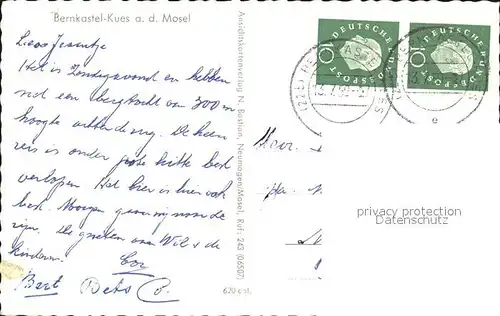 Bernkastel-Kues a. d. Mosel
Lieve Jessentje
Het is Zondagavond en hebben
net een bergtocht van 300 m
hoogte achter de rug. De heen
reis is onder grote hitte best
verlopen Het hier is hier ook
best. Morgen gaan wij naar de
rijn. De groeten van Wil & de
kinderen. Cor
Bert Bets C.
Ansichtskartenverlag N. Bastian, Neumagen/Mosel, Ruf: 243 (06507)
10 DEUTSCHE BUNDESPOST
10 DEUTSCHE BUNDESPOST
e
privacy protection
Datenschutz